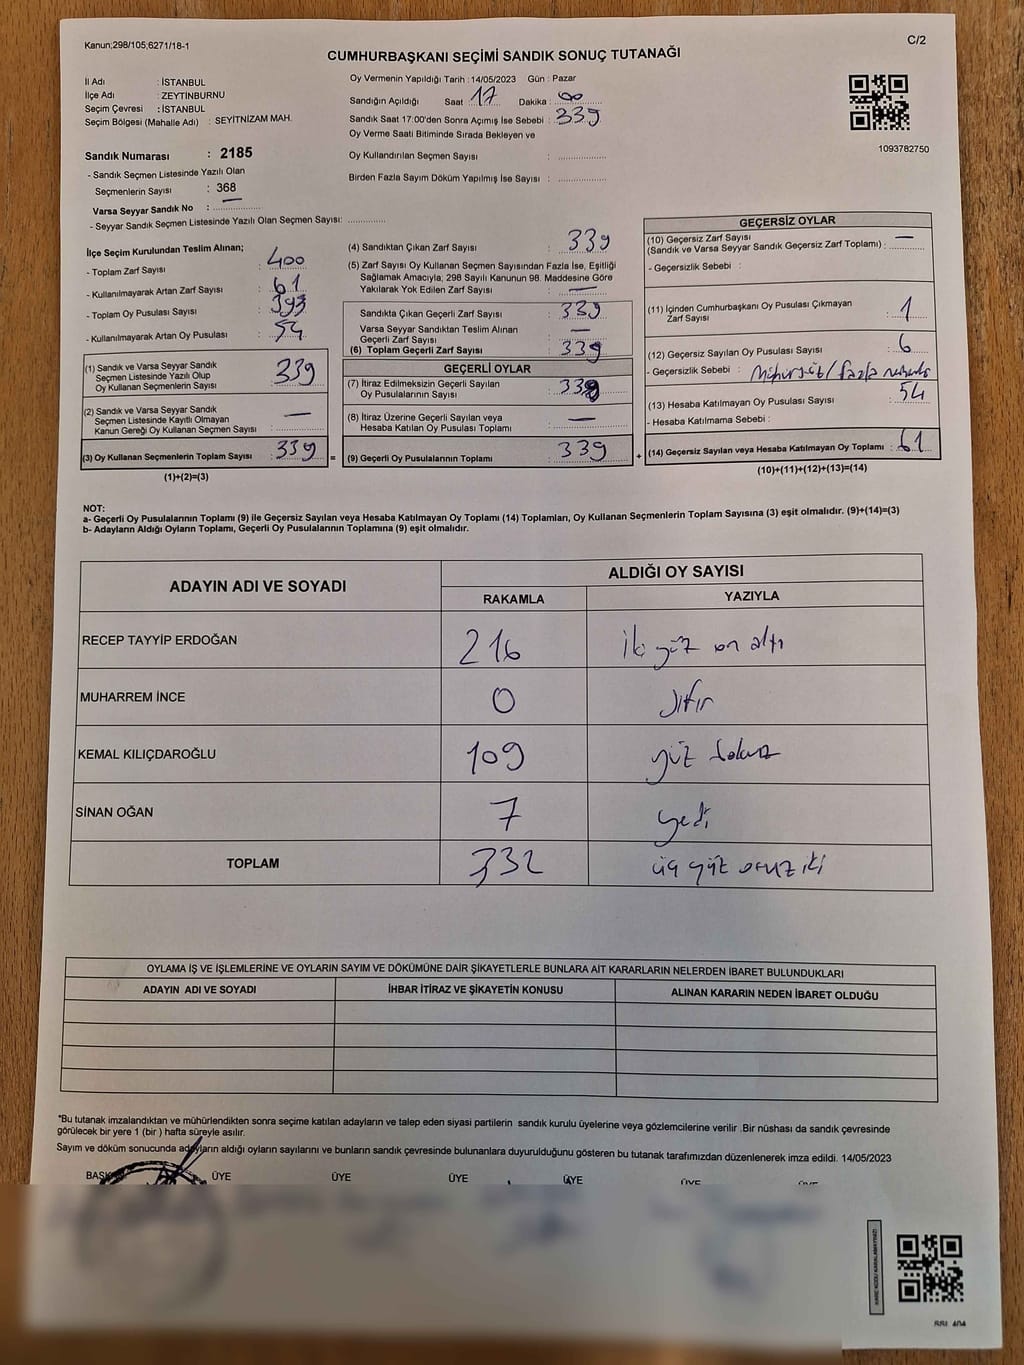 Kanun;298/105;6271/18-1
C/2
CUMHURBAŞKANI SEÇİMİ SANDIK SONUÇ TUTANAĞI
İl Adı : İSTANBUL
İlçe Adı : ZEYTİNBURNU
Seçim Çevresi : İSTANBUL
Seçim Bölgesi (Mahalle Adı) : SEYİTNİZAM MAH.
Sandık Numarası : 2185
- Sandık Seçmen Listesinde Yazılı Olan
Seçmenlerin Sayısı : 368
Varsa Seyyar Sandık No : —
- Seyyar Sandık Seçmen Listesinde Yazılı Olan Seçmen Sayısı: ..............
Oy Vermenin Yapıldığı Tarih : 14/05/2023 Gün : Pazar
Sandığın Açıldığı Saat 17 Dakika : 00
Sandık Saat 17:00'den Sonra Açımış İse Sebebi : 339
Oy Verme Saati Bitiminde Sırada Bekleyen ve
Oy Kullandırılan Seçmen Sayısı : ..............
Birden Fazla Sayım Döküm Yapılmış İse Sayısı : ..............
1093782750
İlçe Seçim Kurulundan Teslim Alınan;
- Toplam Zarf Sayısı : 400
- Kullanılmayarak Artan Zarf Sayısı : 61
- Toplam Oy Pusulası Sayısı : 393
- Kullanılmayarak Artan Oy Pusulası : 54
(1) Sandık ve Varsa Seyyar Sandık
Seçmen Listesinde Yazılı Olup
Oy Kullanan Seçmenlerin Sayısı : 339
(2) Sandık ve Varsa Seyyar Sandık
Seçmen Listesinde Kayıtlı Olmayan
Kanun Gereği Oy Kullanan Seçmen Sayısı : —
(3) Oy Kullanan Seçmenlerin Toplam Sayısı : 339 =
(1)+(2)=(3)
(4) Sandıktan Çıkan Zarf Sayısı : 339
(5) Zarf Sayısı Oy Kullanan Seçmen Sayısından Fazla İse, Eşitliği
Sağlamak Amacıyla; 298 Sayılı Kanunun 98. Maddesine Göre
Yakılarak Yok Edilen Zarf Sayısı : —
Sandıkta Çıkan Geçerli Zarf Sayısı : 339
Varsa Seyyar Sandıktan Teslim Alınan
Geçerli Zarf Sayısı : —
(6) Toplam Geçerli Zarf Sayısı : 339
GEÇERLİ OYLAR
(7) İtiraz Edilmeksizin Geçerli Sayılan
Oy Pusulasının Sayısı : 339
(8) İtiraz Üzerine Geçerli Sayılan veya
Hesaba Katılan Oy Pusulası Toplamı : —
(9) Geçerli Oy Pusulalarının Toplamı : 339 +
GEÇERSİZ OYLAR
(10) Geçersiz Zarf Sayısı
(Sandık ve Varsa Seyyar Sandık Geçersiz Zarf Toplamı) : —
- Geçersizlik Sebebi :
(11) İçinden Cumhurbaşkanı Oy Pusulası Çıkmayan
Zarf Sayısı : 1
(12) Geçersiz Sayılan Oy Pusulası Sayısı : 6
- Geçersizlik Sebebi : Mühürsüz/fazla
(13) Hesaba Katılmayan Oy Pusulası Sayısı : 54
- Hesaba Katılmama Sebebi :
(14) Geçersiz Sayılan veya Hesaba Katılmayan Oy Toplamı : 61
(10)+(11)+(12)+(13)=(14)
NOT:
a- Geçerli Oy Pusulalarının Toplamı (9) ile Geçersiz Sayılan veya Hesaba Katılmayan Oy Toplamı (14) Toplamları, Oy Kullanan Seçmenlerin Toplam Sayısına (3) eşit olmalıdır. (9)+(14)=(3)
b- Adayların Aldığı Oyların Toplamı, Geçerli Oy Pusulalarının Toplamına (9) eşit olmalıdır.
ADAYIN ADI VE SOYADI
ALDIĞI OY SAYISI
RAKAMLA YAZIYLA
RECEP TAYYİP ERDOĞAN 216 iki yüz on altı
MUHARREM İNCE 0 sıfır
KEMAL KILIÇDAROĞLU 109 yüz dokuz
SİNAN OĞAN 7 yedi
TOPLAM 332 üç yüz otuz iki
OYLAMA İŞ VE İŞLEMLERİNE VE OYLARIN SAYIM VE DÖKÜMÜNE DAİR ŞİKAYETLERLE BUNLARA AİT KARARLARIN NELERDEN İBARET BULUNDUKLARI
ADAYIN ADI VE SOYADI İHBAR İTİRAZ VE ŞİKAYETİN KONUSU ALINAN KARARIN NEDEN İBARET OLDUĞU
*Bu tutanak imzalandıktan ve mühürlendikten sonra seçime katılan adayların ve talep eden siyasi partilerin sandık kurulu üyelerine veya gözlemcilerine verilir .Bir nüshası da sandık çevresinde
görülecek bir yere 1 (bir ) hafta süreyle asılır.
Sayım ve döküm sonucunda adayların aldığı oyların sayılarını ve bunların sandık çevresinde bulunanlara duyurulduğunu gösteren bu tutanak tarafımızdan düzenlenerek imza edildi. 14/05/2023
ÜYE ÜYE ÜYE ÜYE ÜYE